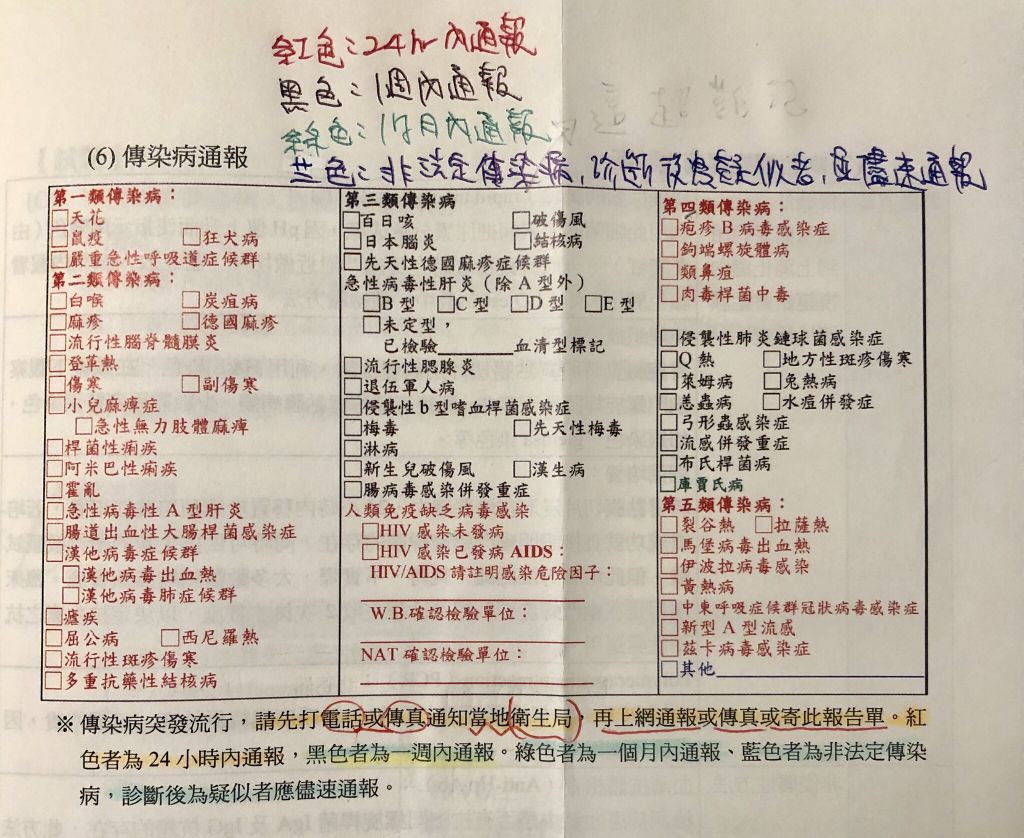 紅色：24hr內通報
黑色：1週內通報
綠色：1個月內通報
藍色：非法定傳染病，診斷後為疑似者，應儘速通報
(6) 傳染病通報
第一類傳染病：
□天花
□鼠疫 □狂犬病
□嚴重急性呼吸道症候群
第二類傳染病：
□白喉 □炭疽病
□麻疹 □德國麻疹
□流行性腦脊髓膜炎
□登革熱
□傷寒 □副傷寒
□小兒麻痺症
□急性無力肢體麻痺
□桿菌性痢疾
□阿米巴性痢疾
□霍亂
□急性病毒性A型肝炎
□腸道出血性大腸桿菌感染症
□漢他病毒症候群
□漢他病毒出血熱
□漢他病毒肺症候群
□瘧疾
□屈公病 □西尼羅熱
□流行性斑疹傷寒
□多重抗藥性結核病
第三類傳染病
□百日咳 □破傷風
□日本腦炎 □結核病
□先天性德國麻疹症候群
急性病毒性肝炎（除A型外）
□B型 □C型 □D型 □E型
□未定型，
已檢驗______血清型標記
□流行性腮腺炎
□退伍軍人病
□侵襲性b型嗜血桿菌感染症
□梅毒 □先天性梅毒
□淋病
□新生兒破傷風 □漢生病
□腸病毒感染併發重症
人類免疫缺乏病毒感染
□HIV感染未發病
□HIV感染已發病AIDS：
HIV/AIDS請註明感染危險因子：
W.B.確認檢驗單位：
NAT確認檢驗單位：
第四類傳染病：
□疱疹B病毒感染症
□鉤端螺旋體病
□類鼻疽
□肉毒桿菌中毒
□侵襲性肺炎鏈球菌感染症
□Q熱 □地方性斑疹傷寒
□萊姆病 □兔熱病
□恙蟲病 □水痘併發症
□弓形蟲感染症
□流感併發重症
□布氏桿菌病
□庫賈氏病
第五類傳染病：
□裂谷熱 □拉薩熱
□馬堡病毒出血熱
□伊波拉病毒感染
□黃熱病
□中東呼吸症候群冠狀病毒感染症
□新型A型流感
□茲卡病毒感染症
□其他______
※ 傳染病突發流行，請先打電話或傳真通知當地衛生局，再上網通報或傳真或寄此報告單。紅
色者為24小時內通報，黑色者為一週內通報。綠色者為一個月內通報、藍色者為非法定傳染
病，診斷後為疑似者應儘速通報。